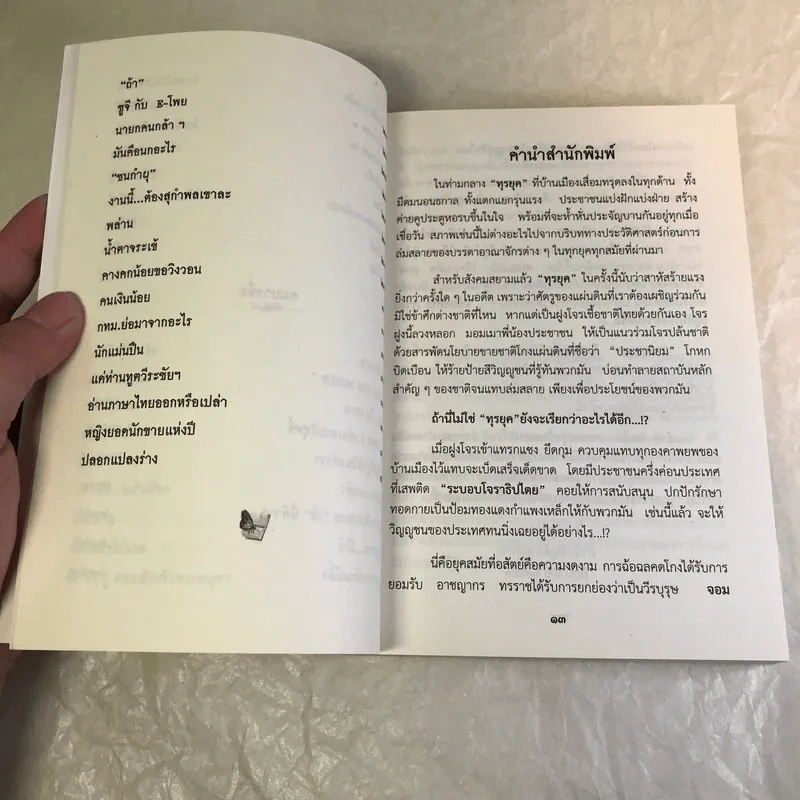 "ถ้า"
ซูจี กับ E-โพย
นายกคนกล้า ๆ
มันคือนกอะไร
"ชนกำผุ"
งานนี้...ต้องสุกำพลเขาละ
พล่าน
น้ำตาจระเข้
คางคกน้อยขอวิงวอน
คนเงินน้อย
กทม.ย่อมาจากอะไร
นักแม่นปืน
แค่ท่านทูตวีระชัยฯ
อ่านภาษาไทยออกหรือเปล่า
หญิงยอดนักขายแห่งปี
ปลอกแปลงร่าง
คำนำสำนักพิมพ์
ในท่ามกลาง "ทุรยุค" ที่บ้านเมืองเสื่อมทรุดลงในทุกด้าน ทั้ง
มืดมนอนธกาล ทั้งแตกแยกรุนแรง ประชาชนแบ่งฝักแบ่งฝ่าย สร้าง
ค่ายคูประตูหอรบขึ้นในใจ พร้อมที่จะห้ำหั่นประจัญบานกันอยู่ทุกเมื่อ
เชื่อวัน สภาพเช่นนี้ไม่ต่างอะไรไปจากบริบททางประวัติศาสตร์ก่อนการ
ล่มสลายของบรรดาอาณาจักรต่าง ๆ ในทุกยุคทุกสมัยที่ผ่านมา
สำหรับสังคมสยามแล้ว "ทุรยุค" ในครั้งนี้นับว่าสาหัสร้ายแรง
ยิ่งกว่าครั้งใด ๆ ในอดีต เพราะว่าศัตรูของแผ่นดินที่เราต้องเผชิญร่วมกัน
มิใช่ข้าศึกต่างชาติที่ไหน หากแต่เป็นฝูงโจรเชื้อชาติไทยด้วยกันเอง โจร
ฝูงนี้ลวงหลอก มอมเมาพี่น้องประชาชน ให้เป็นแนวร่วมโจรปล้นชาติ
ด้วยสารพัดนโยบายขายชาติโกงแผ่นดินที่ชื่อว่า "ประชานิยม" โกหก
บิดเบือน ให้ร้ายป้ายสีวิญญูชนที่รู้ทันพวกมัน บ่อนทำลายสถาบันหลัก
สำคัญ ๆ ของชาติจนแทบล่มสลาย เพียงเพื่อประโยชน์ของพวกมัน
ถ้านี่ไม่ใช่ "ทุรยุค"ยังจะเรียกว่าอะไรได้อีก...!?
เมื่อฝูงโจรเข้าแทรกแซง ยึดกุม ควบคุมแทบทุกองคาพยพของ
บ้านเมืองไว้แทบจะเบ็ดเสร็จเด็ดขาด โดยมีประชาชนครึ่งค่อนประเทศ
ที่เสพติด "ระบอบโจราธิปไตย" คอยให้การสนับสนุน ปกปักรักษา
ทอดกายเป็นป้อมทองแดงกำแพงเหล็กให้กับพวกมัน เช่นนี้แล้ว จะให้
วิญญูชนของประเทศทนนิ่งเฉยอยู่ได้อย่างไร...!?
นี่คือยุคสมัยที่อสัตย์คือความงดงาม การฉ้อฉลคดโกงได้รับการ
ยอมรับ อาชญากร ทรราชได้รับการยกย่องว่าเป็นวีรบุรุษ จอม
๑๓